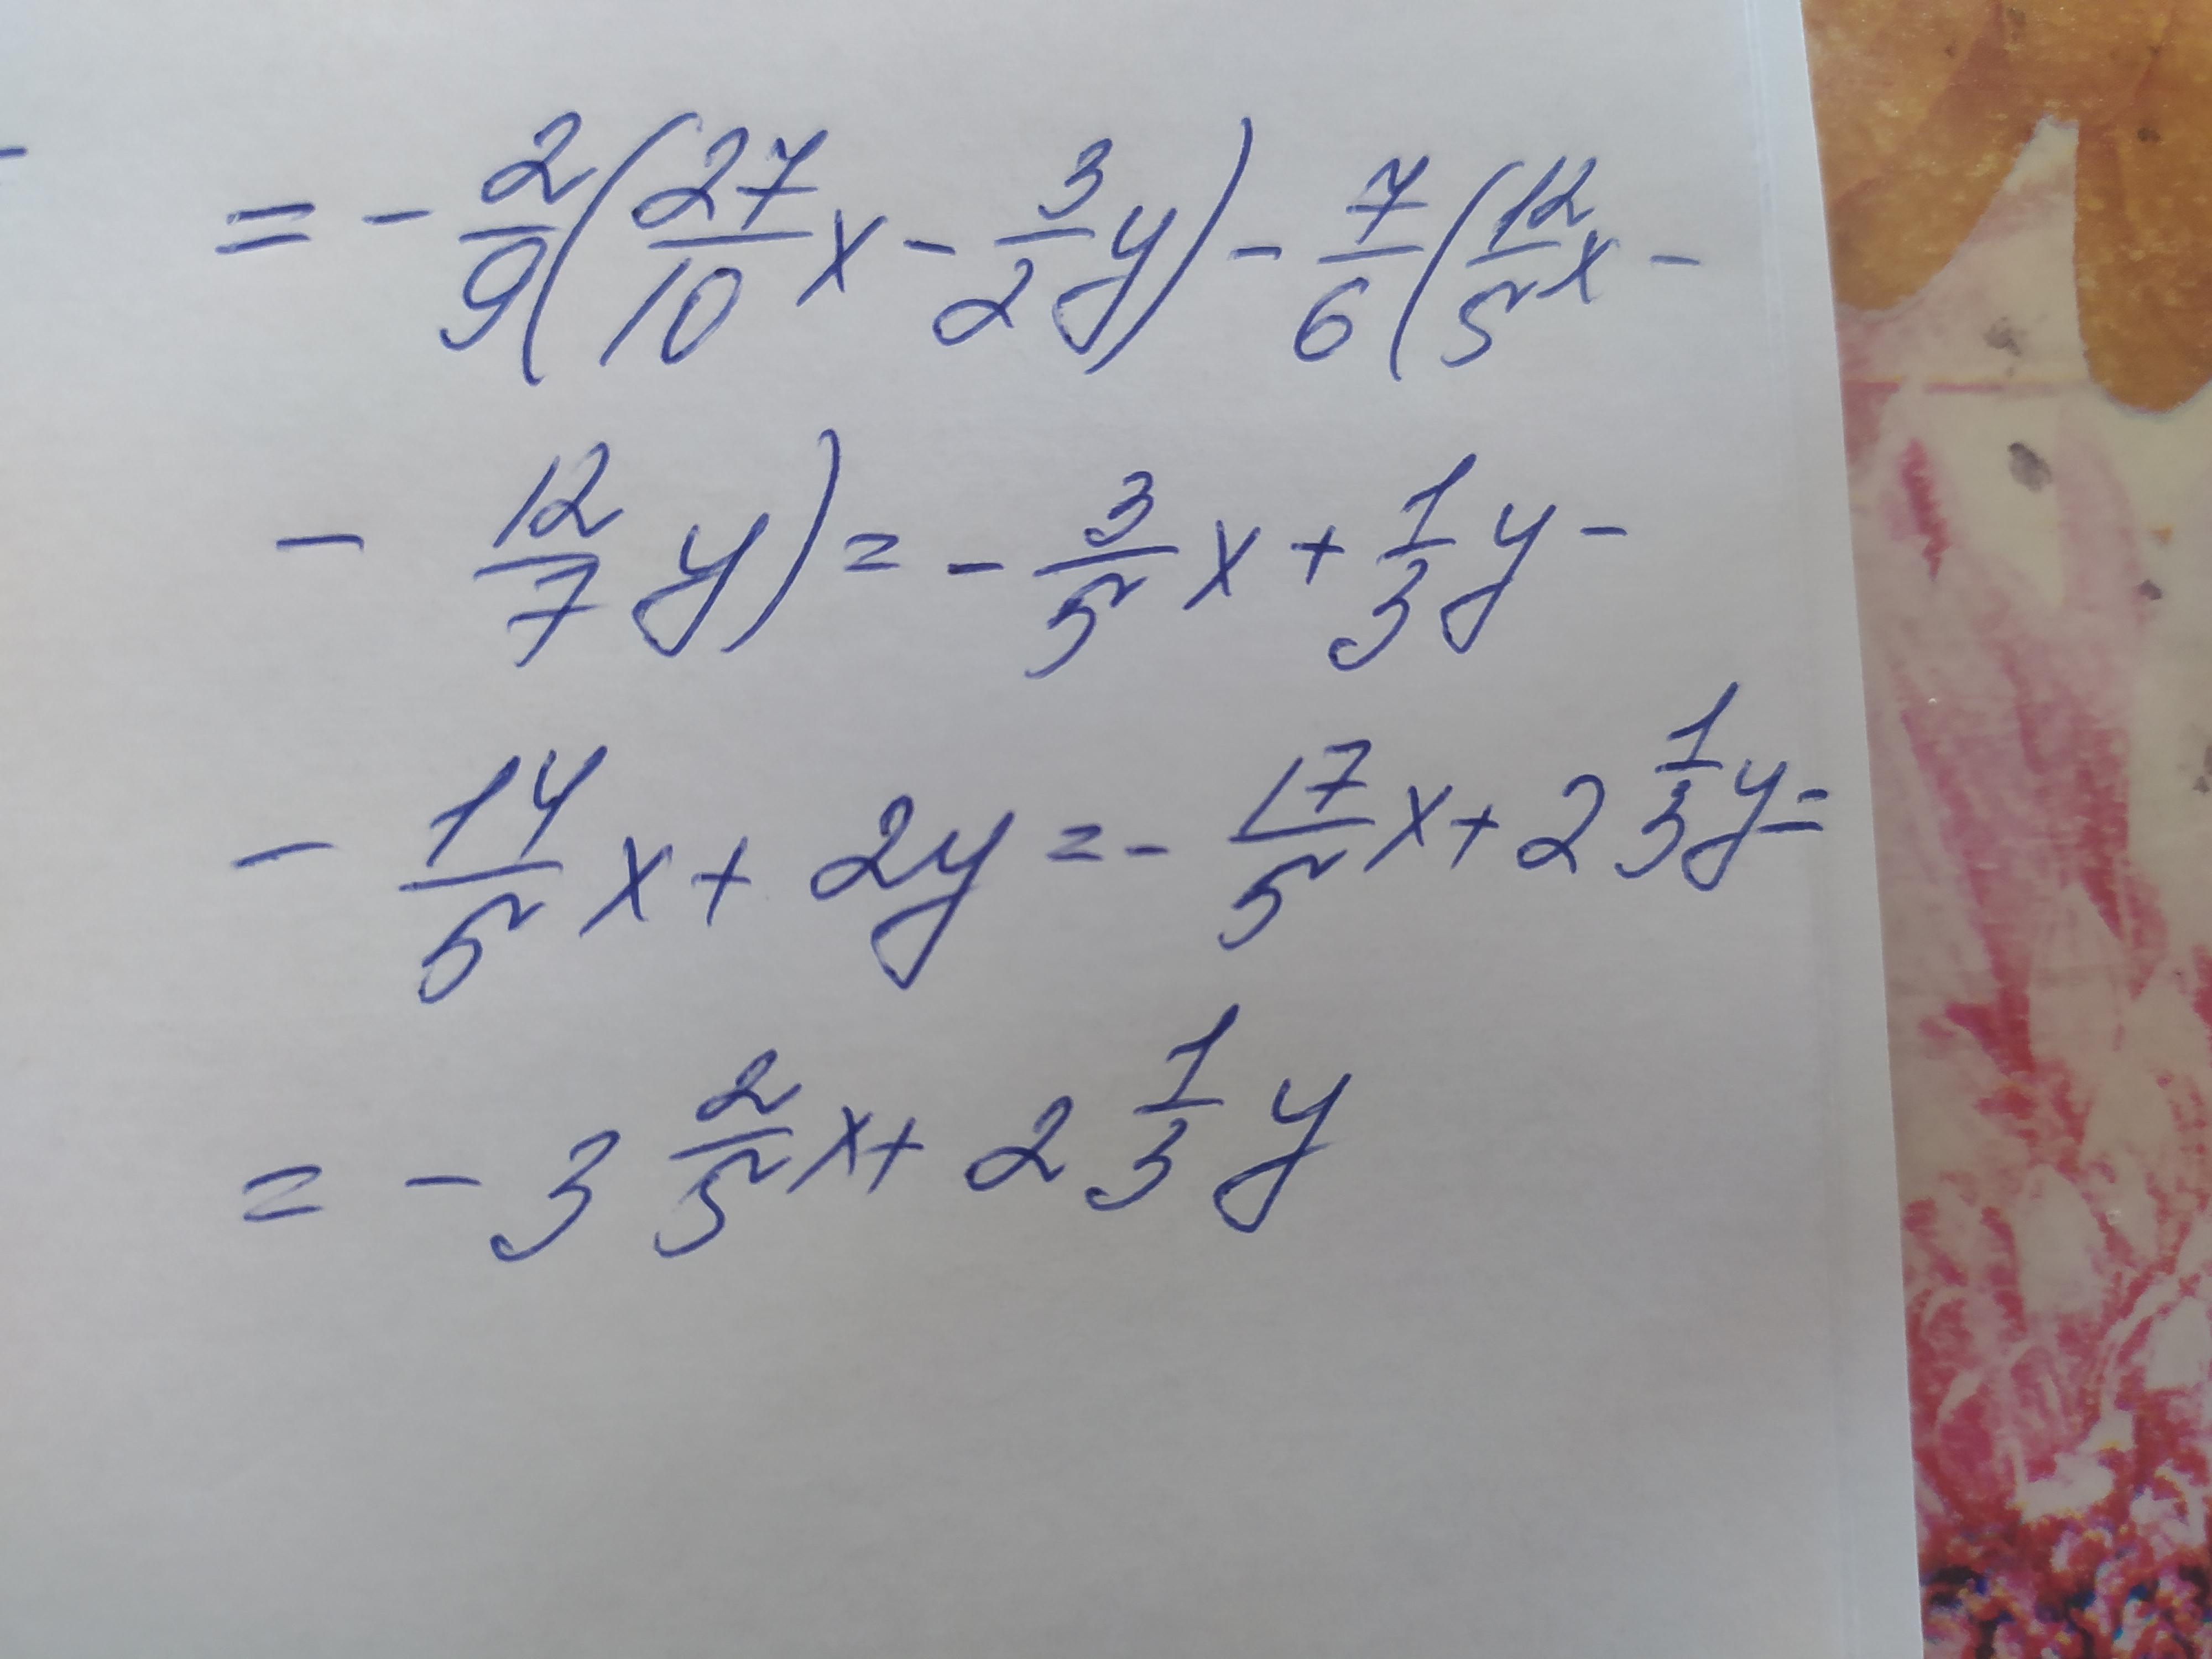 = - 2/9 (27/10 x - 3/2 y) - 7/6 (12/5 x -
- 12/7 y) = - 3/5 x + 1/3 y -
- 14/5 x + 2y = - 17/5 x + 2 1/3 y =
= - 3 2/5 x + 2 1/3 y